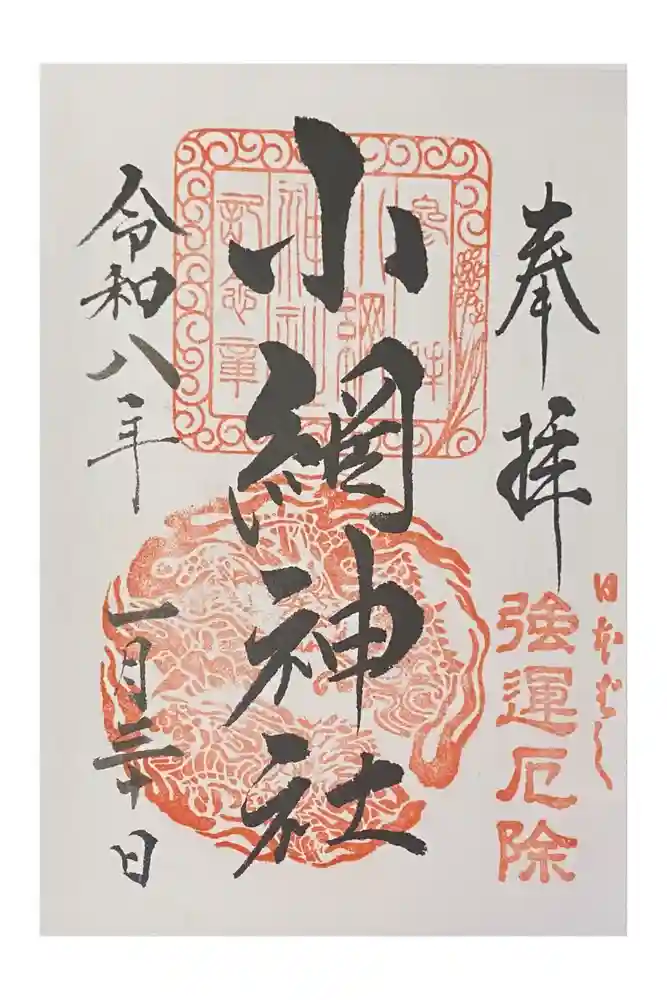 奉拝
日本ばし
強運厄除
小網神社
参拝
小網
神社
記念章
令和八年
一月三十日